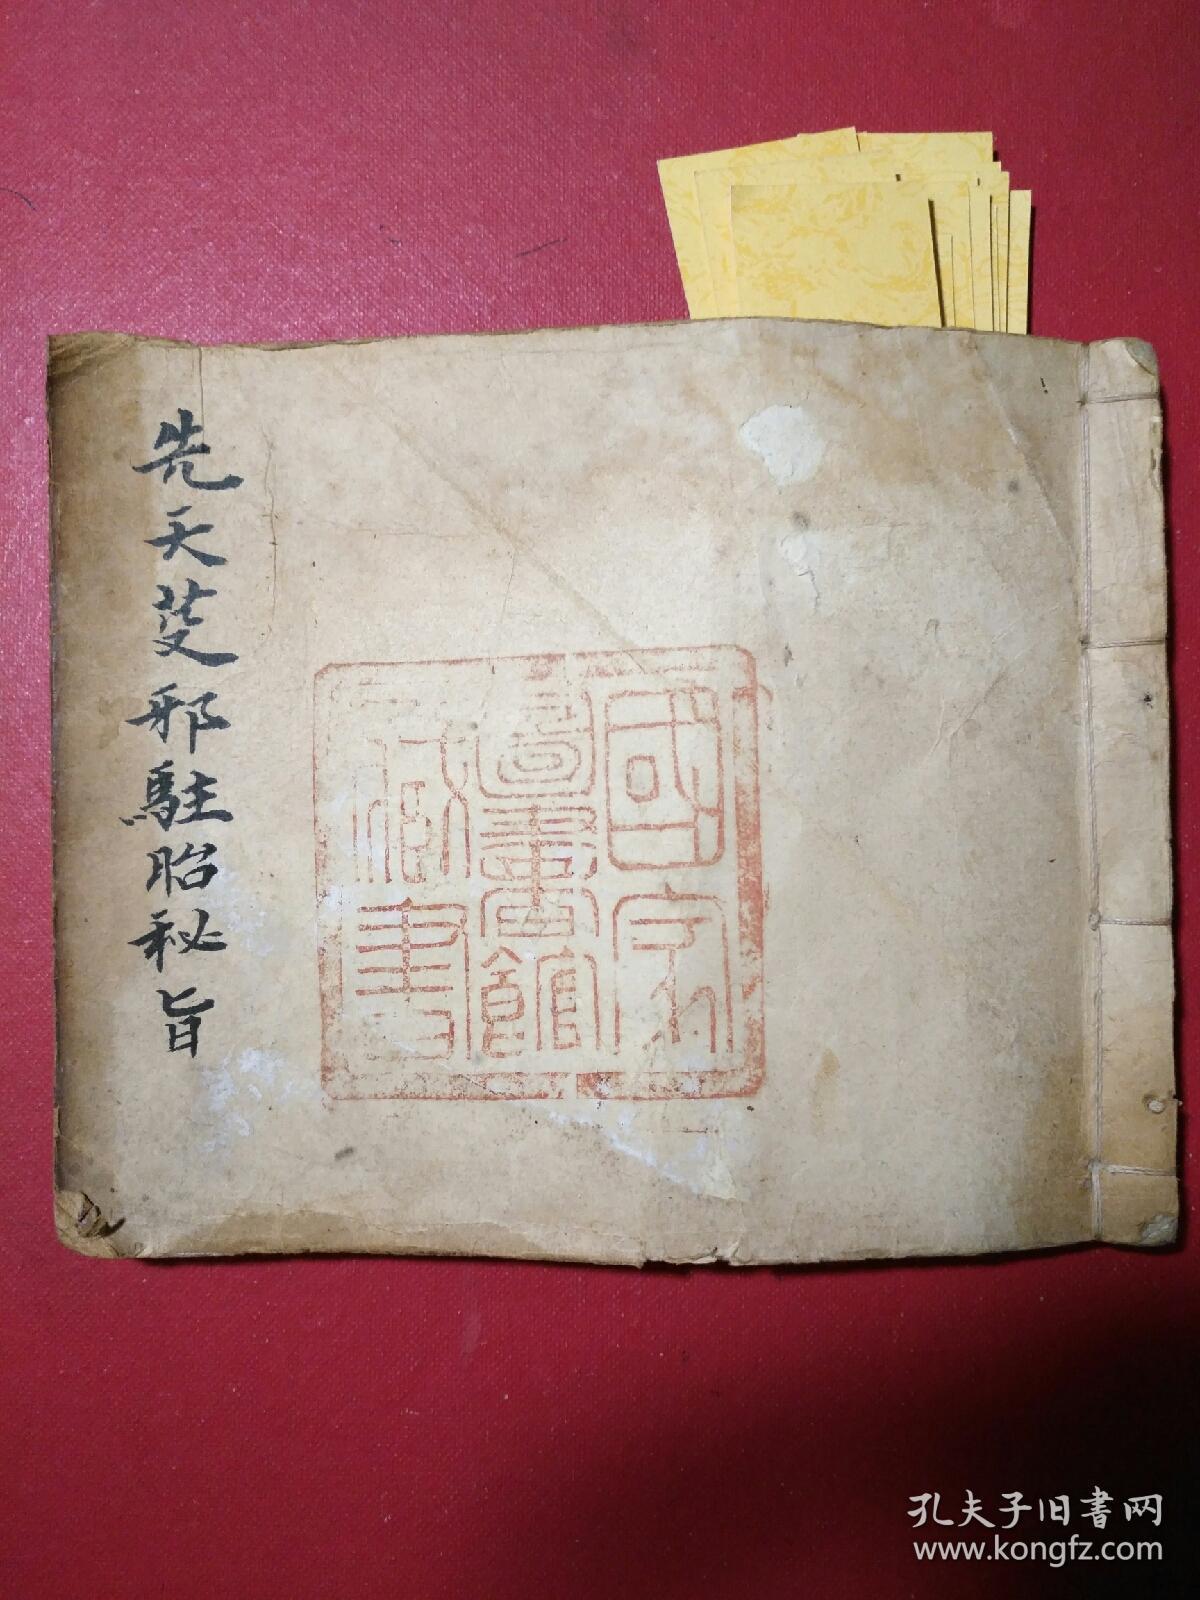 先天芟邪駐胎秘旨
國家
圖書館
藏書
孔夫子旧書网
www.kongfz.com